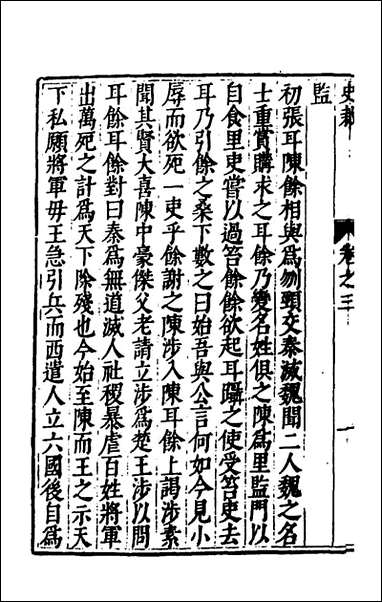 卷之三
一
監
初張耳陳餘相與爲刎頸交秦滅魏聞二人魏之名
士重賞購求之耳餘乃變名姓俱之陳爲里監門以
自食里吏嘗以過笞餘餘欲起耳躡之使受笞吏去
耳乃引餘之桑下數之曰始吾與公言何如今見小
辱而欲死一吏乎餘謝之陳涉入陳耳餘上謁涉素
聞其賢大喜陳中豪傑父老請立涉爲楚王涉以問
耳餘耳餘對曰秦爲無道滅人社稷暴虐百姓將軍
出萬死之計爲天下除殘也今始至陳而王之示天
下私願將軍毋王急引兵而西遣人立六國後自爲